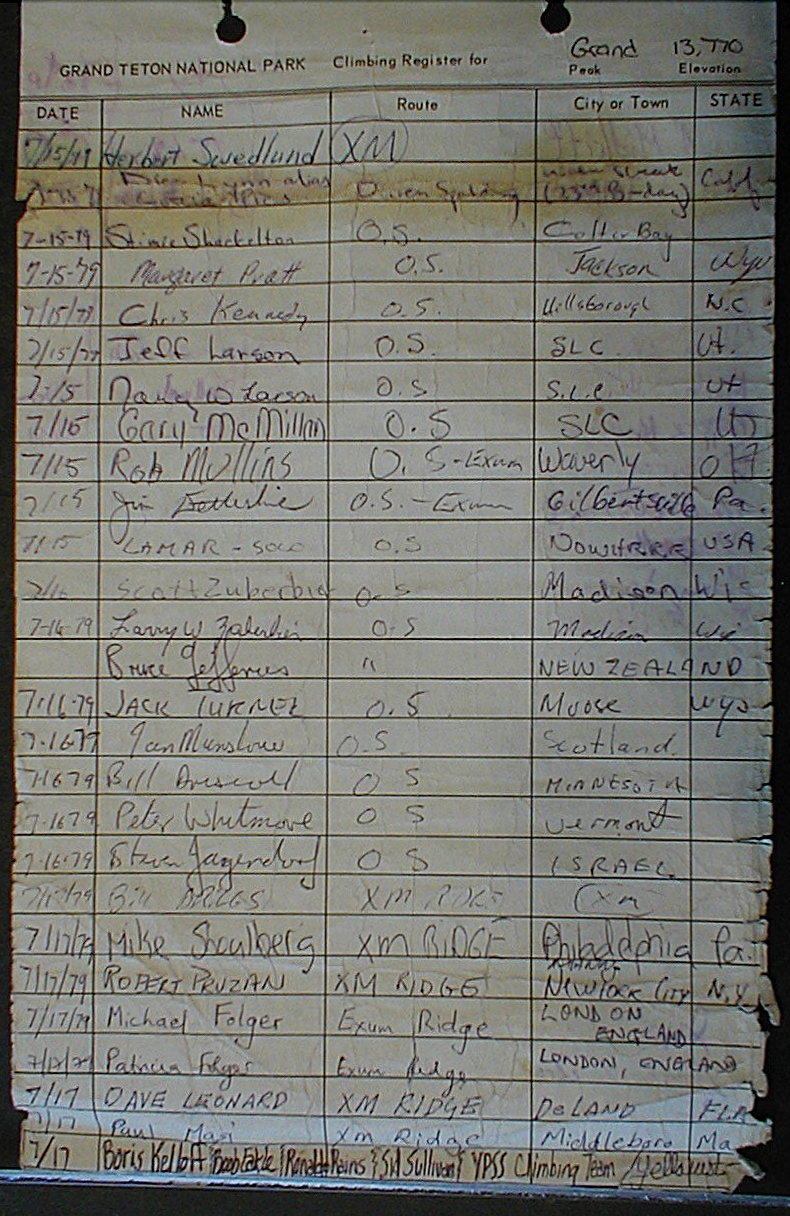 Grand 13,770
GRAND TETON NATIONAL PARK Climbing Register for Peak Elevation
DATE NAME Route City or Town STATE
7/15/79 Herbert Swedlund XM
alias Owen Spalding Calif
7-15-79 Shackelton O.S. Colter Bay
7-15-79 Margaret Pratt O.S. Jackson Wyo
7/15/79 Chris Kennedy O.S. Hillsborough N.C
7/15/79 Jeff Larson O.S. SLC Ut.
7/15 Nancy W Larson O.S S.L.C Ut
7/15 Gary McMillan O.S SLC UT
7/15 Rob Mullins O.S-Exum Waverly OH
7/15 Jim O.S.-Exum Gilbertsville Pa.
7/15 LAMAR-SOLO O.S NOWHERE USA
7/16 Scott Zuberbier O-S Madison Wis
7-16-79 Larry W O-S Madison Wi
Bruce Jefferies " NEW ZEALAND
7-16-79 JACK TURNER O.S Moose Wyo
7-16-79 Ian O.S. Scotland.
7-16 79 Bill Driscoll O S MINNESOTA
7-16 79 Peter Whitmore O S Vermont
7-16-79 Steven Jagendorf O S ISRAEL.
Bill BRIGGS XM RIDGE (Xm
7/17/79 Mike Shoulberg XM RIDGE Philadelphia Pa.
7/17/79 ROBERT PRUZAN XM RIDGE New York City N.Y.
7/17/79 Michael Folger Exum Ridge LONDON ENGLAND
Patricia Folger Exum Ridge LONDON, ENGLAND
7/17 DAVE LEONARD XM RIDGE DeLAND FLA
7/17 Paul Xm Ridge Middleboro Ma
7/17 Boris Sid Sullivan YPSS Climbing Team